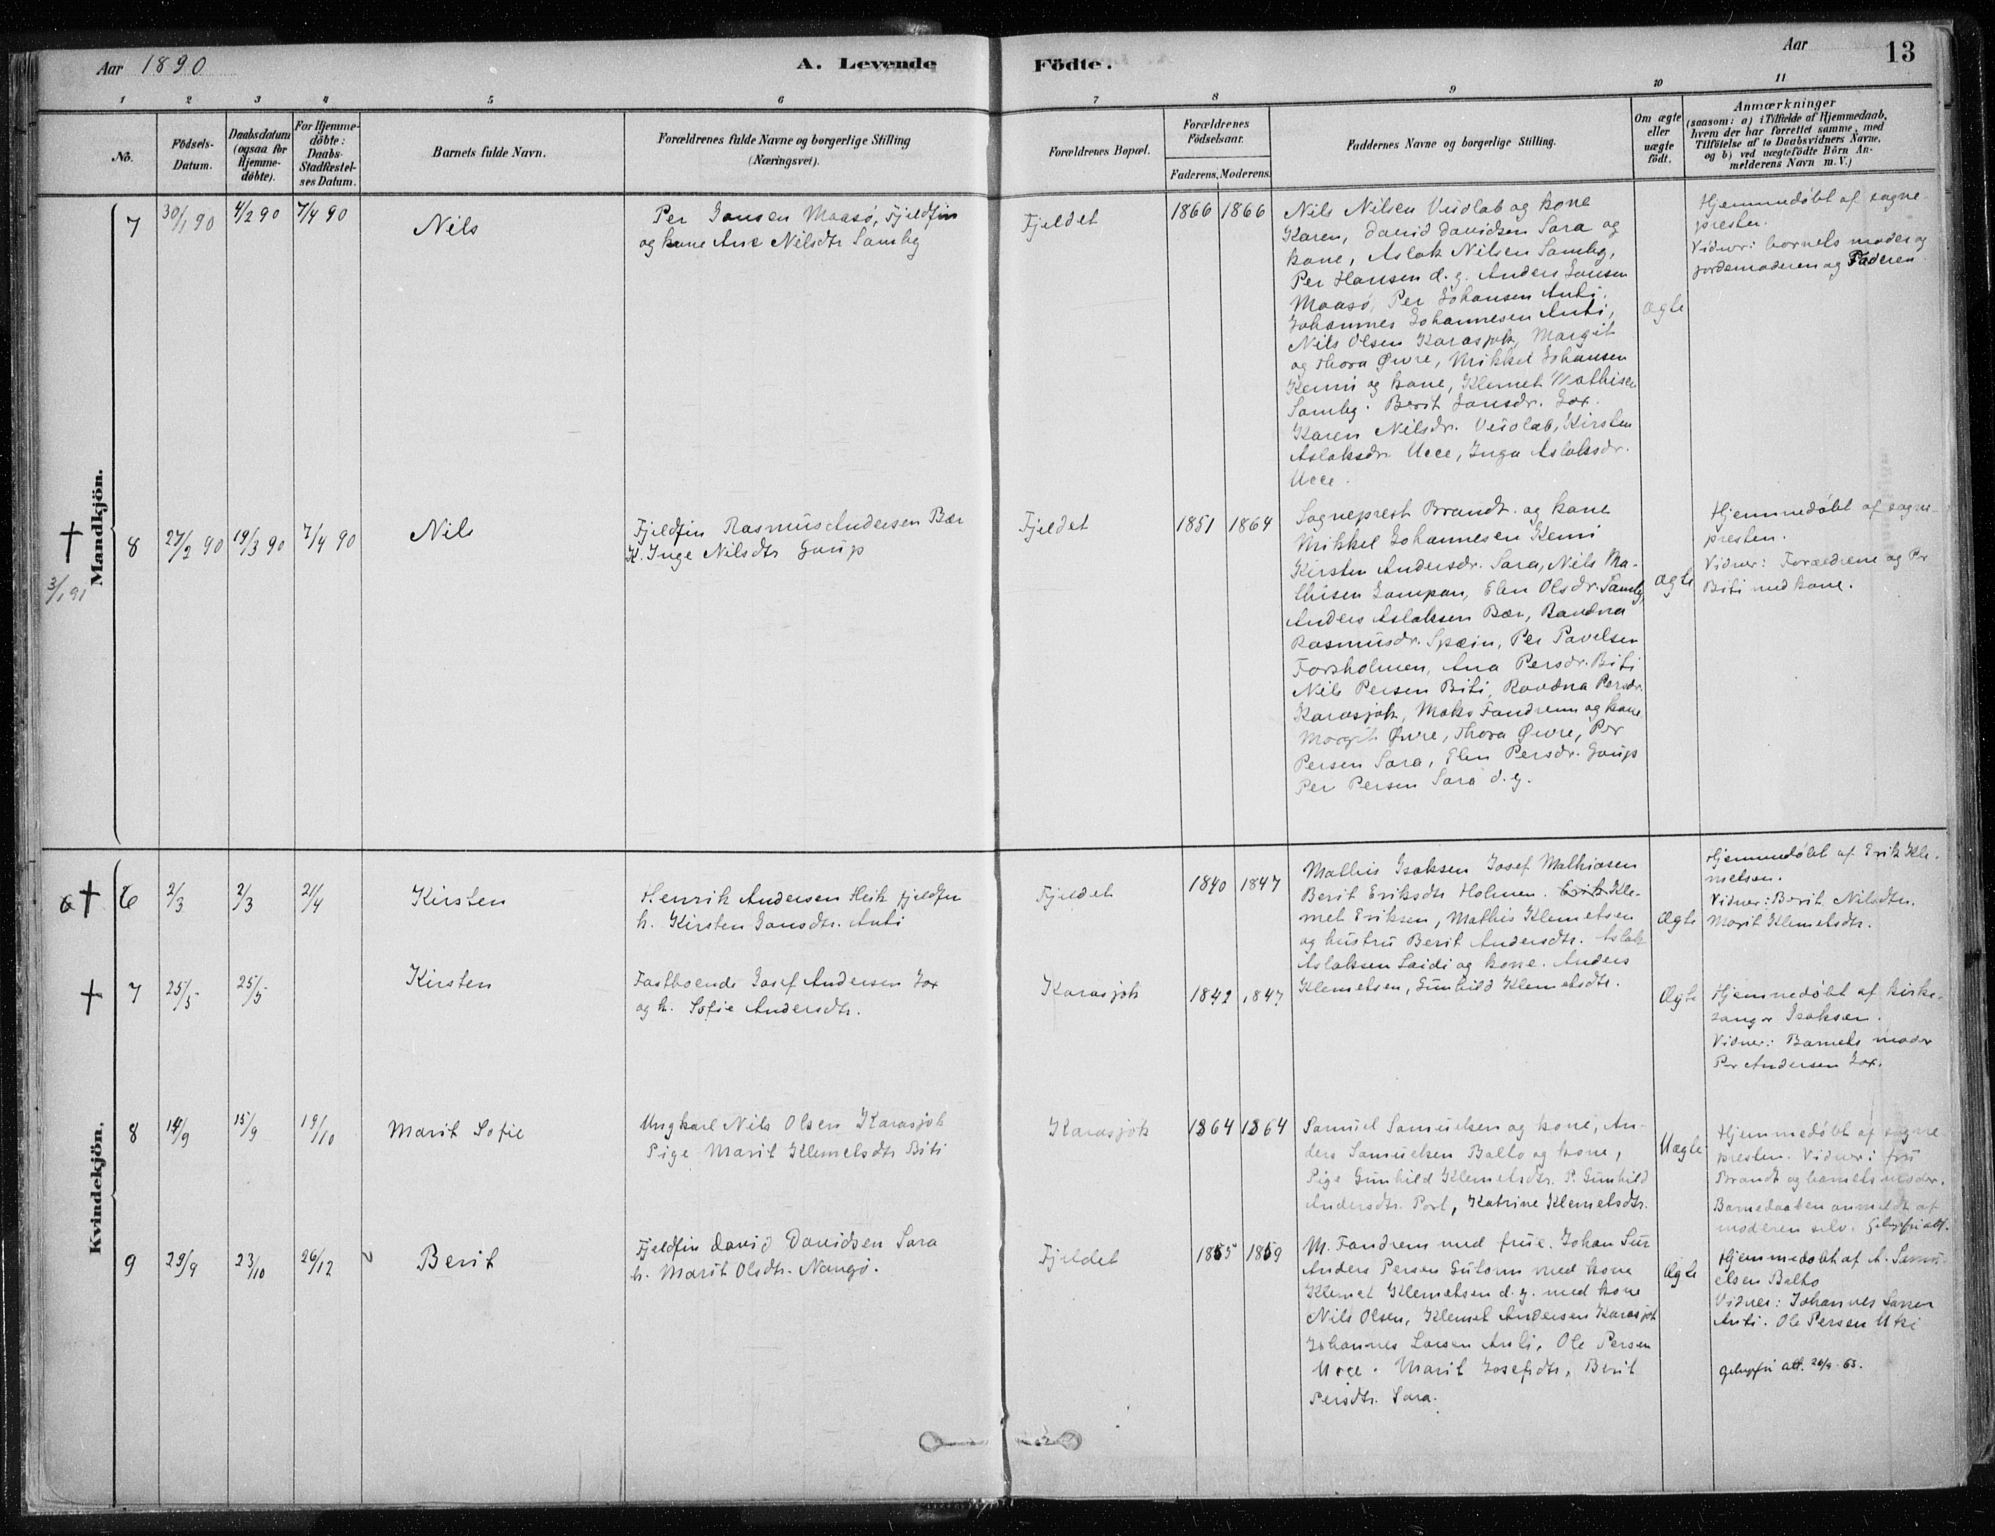 Aar 1890
A. Levende
Födte.
Aar
13
1 2 3 4 5 6 7 8 9 10 11
No.
Födsels-
Datum.
Daabsdatum
(ogsaa for
Hjemme-
döbte).
For Hjemme-
döbte:
Daabs-
Stadfestel-
ses Datum.
Barnets fulde Navn.
Forældrenes fulde Navne og borgerlige Stilling
(Næringsvei).
Forældrenes Bopæl.
Forældrenes
Födselsaar.
Faderens. Moderens.
Faddernes Navne og borgerlige Stilling.
Om ægte
eller
uægte
født.
Anmærkninger
(saasom: a) i Tilfælde af Hjemmedaab,
hvem der har forrettet samme, med
Tilföielse af to Daabsvidners Navne,
og b) ved uægtefödte Börn An-
melderens Navn m. V.)
Mandkjön.
7
30/1 90
4/2 90
7/4 90
Nils
Per Jansen Maasø, Fjeldfin
og kone Ane Nilsdtr Somby
Fjeldet
1866 1866
Nils Nilsen Veidlab og kone
Karen, David Davidsen Sara og
kone, Aslak Nilsen Somby,
Per Hansen d. y. Anders Jonsen
Maasø, Per Johansen Anti,
Johannes Johannesen Anti,
Nils Olsen Karasjok, Margit
og Thora Øvre, Mikkel Johansen
Kemi og kone, Klemet Mathisen
Somby. Berit Jonsdr. Jox.
Karen Nilsdr. Veidlab, Kirsten
Aslaksdr. Ucce, Inga Aslaksdr.
Ucce.
ægte
Hjemmedøbt af sogne-
presten.
Vidner: barnets moder og
jordemoderen og Faderen
†
3/1 91
8
27/2 90
19/3 90
7/4 90
Nils
Fjeldfin Rasmus Andersen Bær
K. Inge Nilsdtr Gaup
Fjeldet
1851 1864
Sogneprest Brandt og kone
Mikkel Johannesen Kemi
Kirsten Andersdr. Sara, Nils Ma-
thisen Jompan, Elen Olsdr. Somby,
Anders Aslaksen Bær, Ravdna
Rasmusdr. Spein, Per Pavelsen
Forsholmen, Ana Persdr. Biti
Nils Persen Biti, Ravdna Persdr.
Karasjok, Maks Fandrem og kone
Margit Øvre, Thora Øvre, Per
Persen Sara, Elen Persdr. Gaup
Per Persen Sara d. y.
ægte
Hjemmedøbt af sogne-
presten.
Vidner: Forældrene og Per
Biti med kone.
Kvindekjön.
6 †
6
2/3
2/3
21/4
Kirsten
Henrik Andersen Heik fjeldfin
h. Kirsten Jonsdtr. Anti
Fjeldet
1840 1847
Mathis Isaksen Josef Mathiasen
Berit Eriksdtr Holmen. Erik Kle-
met Eriksen, Mathis Klemetsen
og hustru Berit Andersdtr. Aslak
Aslaksen Laidi og kone. Anders
Klemetsen, Gunhild Klemetsdtr.
Ægte
Hjemmedøbt af Erik Kle-
metsen.
Vidner: Berit Nilsdtr.
Marit Klemetsdtr.
†
7
25/5
25/5
Kirsten
Fastboende Josef Andersen Jox
og h. Sofie Andersdtr.
Karasjok
1842 1847
Ægte
Hjemmedøbt af kirke-
sanger Isaksen.
Vidner: Barnets moder
Per Andersen Jox.
8
14/9
15/9
19/10
Marit Sofie
Ungkarl Nils Olsen Karasjok
Pige Marit Klemetsdtr Biti
Karasjok
1864 1864
Samuel Samuelsen og kone, An-
ders Samuelsen Balto og kone,
Pige Gunhild Klemetsdtr. P. Gunhild
Andersdtr. Port, Katrine Klemetsdtr.
Uægte
Hjemmedøbt af sogne-
presten. Vidner: fru
Brandt og barnets moder.
Barnedaaben anmeldt af
moderen selv. Gebyrfri att.
9
29/9
23/10
26/12
Berit
Fjeldfin David Davidsen Sara
h. Marit Olsdtr. Nango.
Fjeldet
1855 1859
M. Fandrem med frue. Johan Sur
Anders Persen Gutorm med kone
Klemet Klemetsen d. y. med kone
Nils Olsen, Klemet Andersen Karasjok
Johannes Larsen Anti, Ole Persen
Ucce. Marit Josefsdtr, Berit
Persdtr. Sara.
Ægte
Hjemmedøbt af A. Samu-
elsen Balto
Vidner: Johannes Larsen
Anti. Ole Persen Utsi
gebyrfri att. 26/9 - 63.